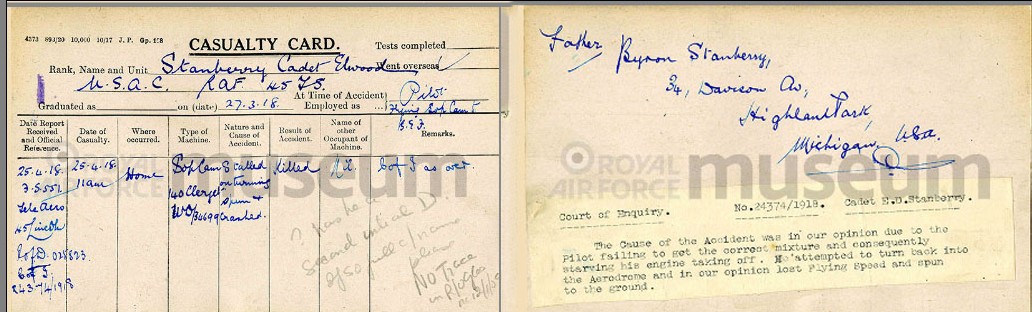 4373 893/20 10,000 10/17 J. P. Gp. 118
CASUALTY CARD.
Tests completed
Rank, Name and Unit Stanberry Cadet Elwood
Went overseas
U.S.A.C. RAF 45 T.S.
At Time of Accident) Pilot
Graduated as on (date) 27.3.18. Employed as
Date Report Received and Official Reference.
Date of Casualty.
Where occurred.
Type of Machine.
Nature and Cause of Accident.
Result of Accident.
Name of other Occupant of Machine.
Remarks.
25.4.18. 25-4-18. Home Sop Cam Stalled Killed Nil C of I as over.
11 am on turning
Tele Aero Clerget spun &
crashed.
? Has he a
second initial D.
If so full c/name
please
NO Trace
Father
Byron Stanberry,
34, Davison Av,
Highland Park,
Michigan, USA.
Court of Enquiry. No.24374/1918. Cadet E.D.Stanberry.
The Cause of the Accident was in our opinion due to the
Pilot failing to get the correct mixture and consequently
starving his engine taking off. He attempted to turn back into
the Aerodrome and in our opinion lost Flying Speed and spun
to the ground.
ROYAL AIR FORCE museum
ROYAL AIR FORCE museum